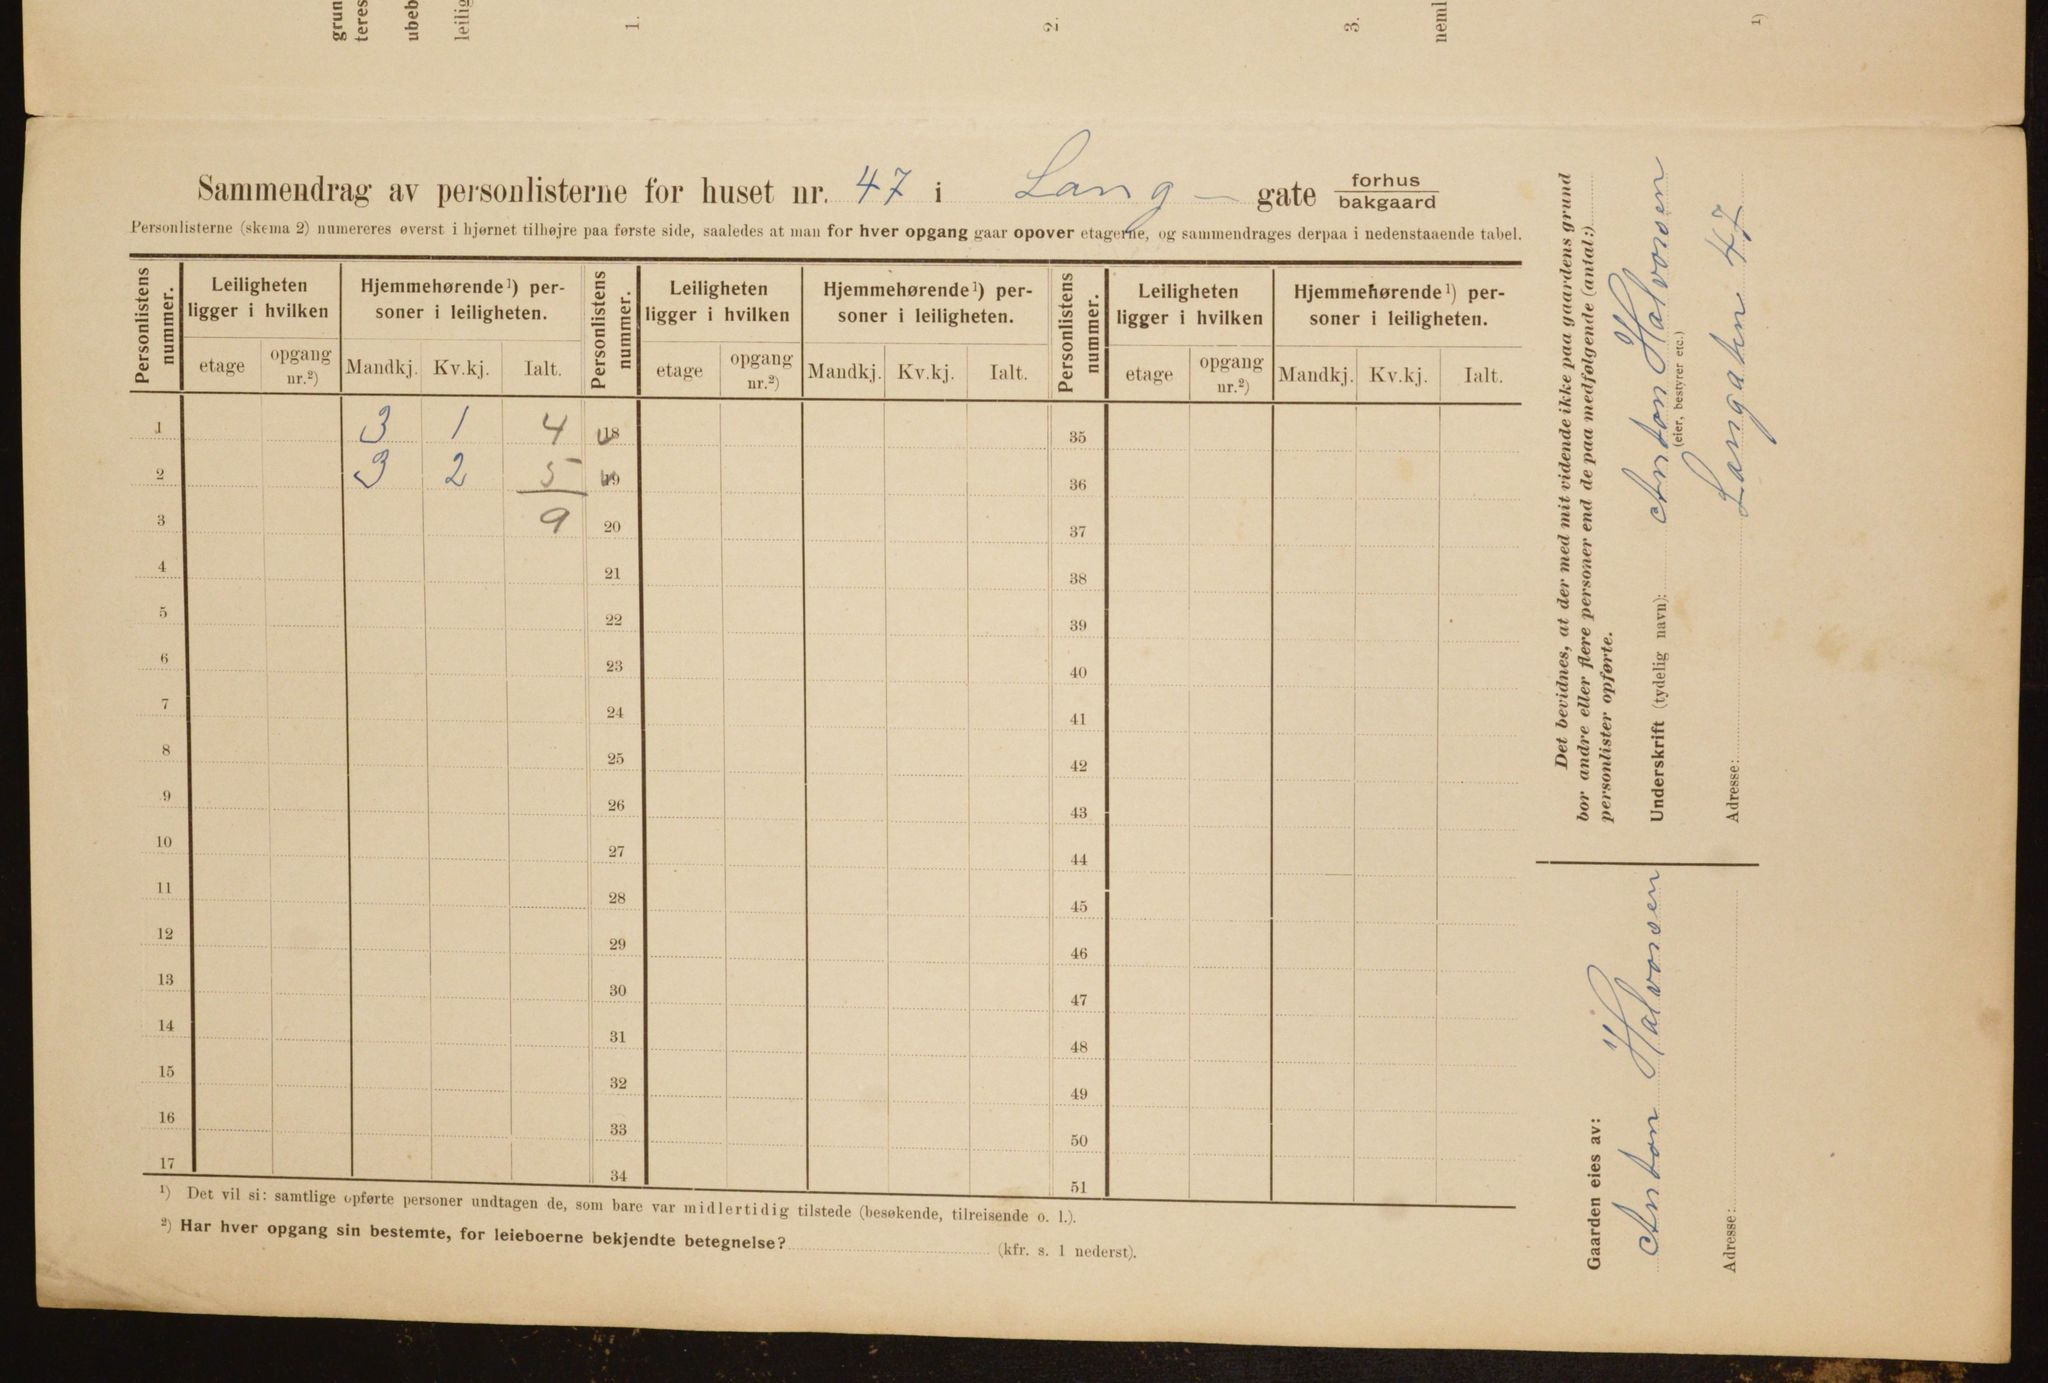 grun
teres
ubeb
leilig
1.
2.
3.
neml
1)
Sammendrag av personlisterne for huset nr. 47 i Lang- gate forhus
bakgaard
Personlisterne (skema 2) numereres øverst i hjørnet tilhøjre paa første side, saaledes at man for hver opgang gaar opover etagerne, og sammendrages derpaa i nedenstaaende tabel.
Personlistens nummer. Leiligheten ligger i hvilken Hjemmehørende¹) personer i leiligheten. Personlistens nummer. Leiligheten ligger i hvilken Hjemmehørende¹) personer i leiligheten. Personlistens nummer. Leiligheten ligger i hvilken Hjemmehørende¹) personer i leiligheten.
etage opgang nr.²) Mandkj. Kv.kj. Ialt. etage opgang nr.²) Mandkj. Kv.kj. Ialt. etage opgang nr.²) Mandkj. Kv.kj. Ialt.
1 3 1 4 18 35
2 3 2 5 19 36
3 9 20 37
4 21 38
5 22 39
6 23 40
7 24 41
8 25 42
9 26 43
10 27 44
11 28 45
12 29 46
13 30 47
14 31 48
15 32 49
16 33 50
17 34 51
¹) Det vil si: samtlige opførte personer undtagen de, som bare var midlertidig tilstede (besøkende, tilreisende o. l.).
²) Har hver opgang sin bestemte, for leieboerne bekjendte betegnelse? (kfr. s. 1 nederst).
Det bevidnes, at der med mit vidende ikke paa gaardens grund
bor andre eller flere personer end de paa medfølgende (antal:)
personlister opførte.
Underskrift (tydelig navn): Anton Halvorsen
(eier, bestyrer etc.)
Adresse: Langaten 47
Gaarden eies av:
Anton Halvorsen
Adresse: